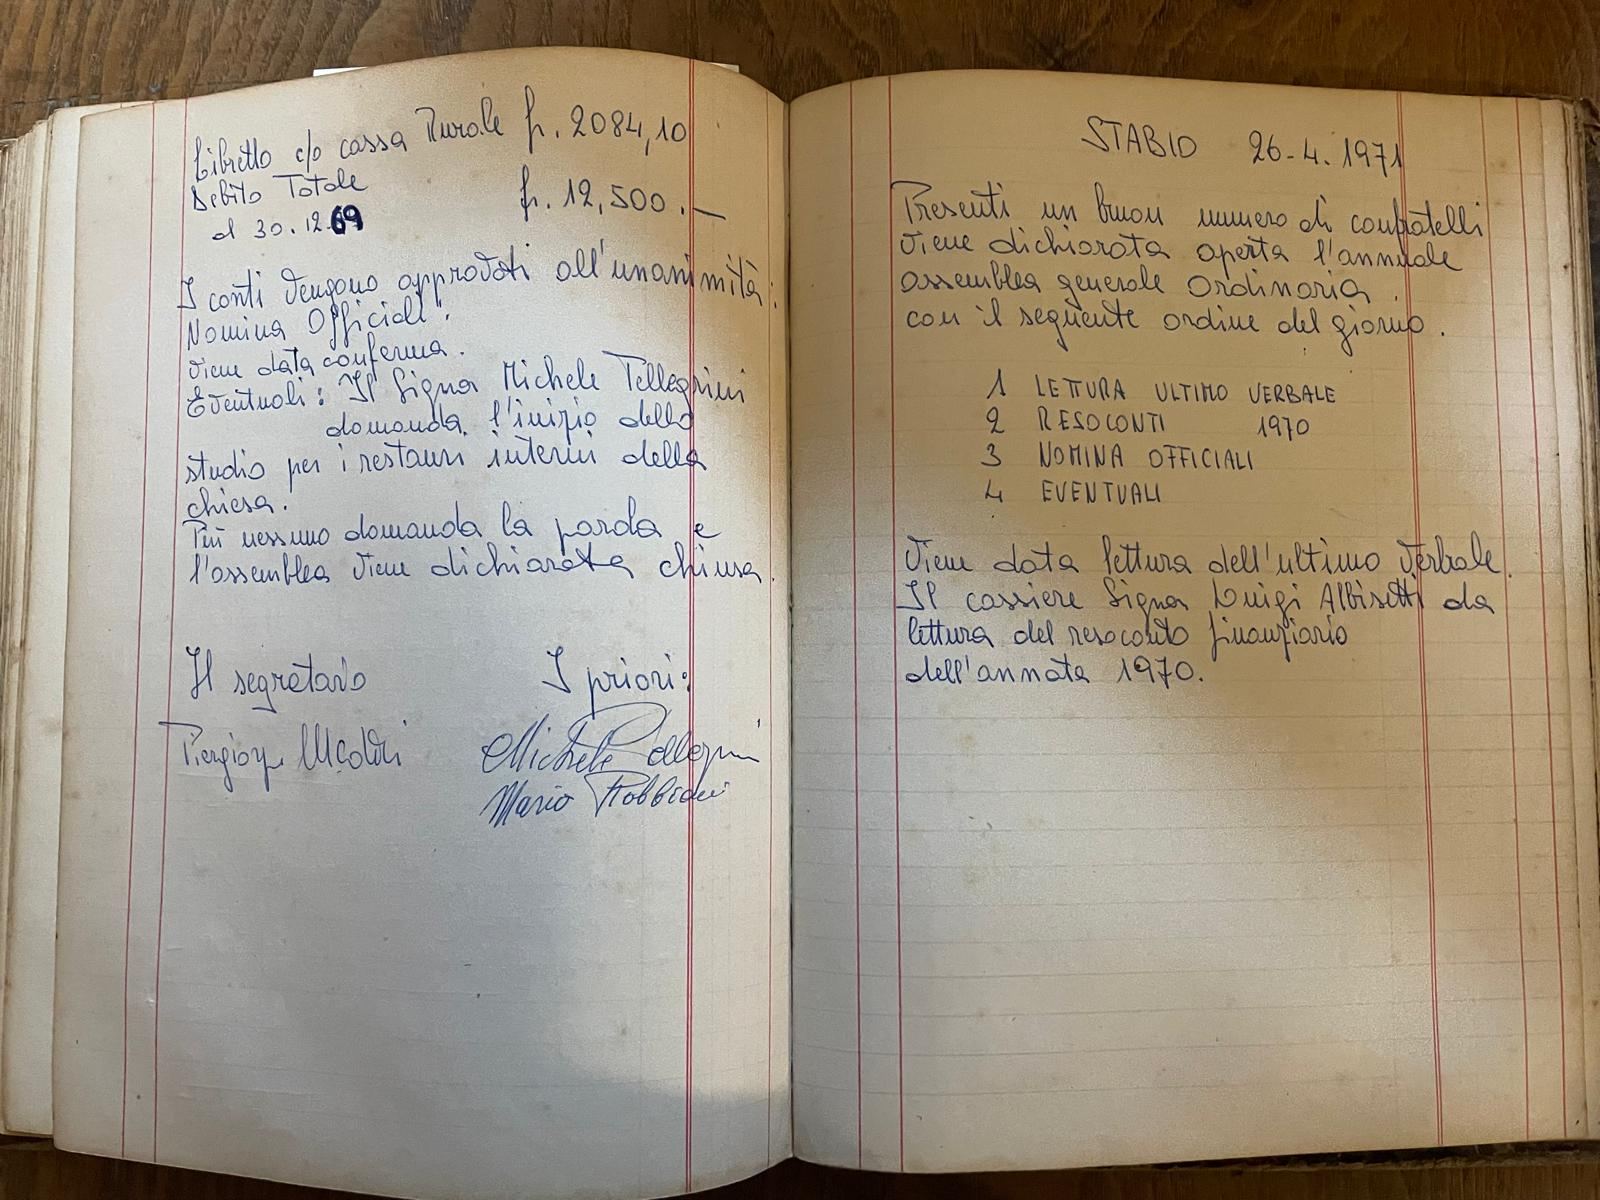 Libretto c/o cassa Rurale fr. 2084,10
Debito Totale fr. 12,500.—
al 30.12.69
I conti vengono approvati all'unanimità:
Nomina Officiali:
viene data conferma.
Eventuali: Il Signor Michele Pellegrini
domanda l'inizio dello
studio per i restauri interni della
chiesa.
Più nessuno domanda la parola e
l'assemblea viene dichiarata chiusa.
Il segretario I priori:
Michele Pellegrini
Mario Robbiani
STABIO 26-4.1971
Presenti un buon numero di confratelli
viene dichiarata aperta l'annuale
assemblea generale Ordinaria.
con il seguente ordine del giorno.
1 LETTURA ULTIMO VERBALE
2 RESOCONTI 1970
3 NOMINA OFFICIALI
4 EVENTUALI
Viene data lettura dell'ultimo Verbale.
Il cassiere Signor Luigi Albisetti da
lettura del resoconto finanziario
dell'annata 1970.